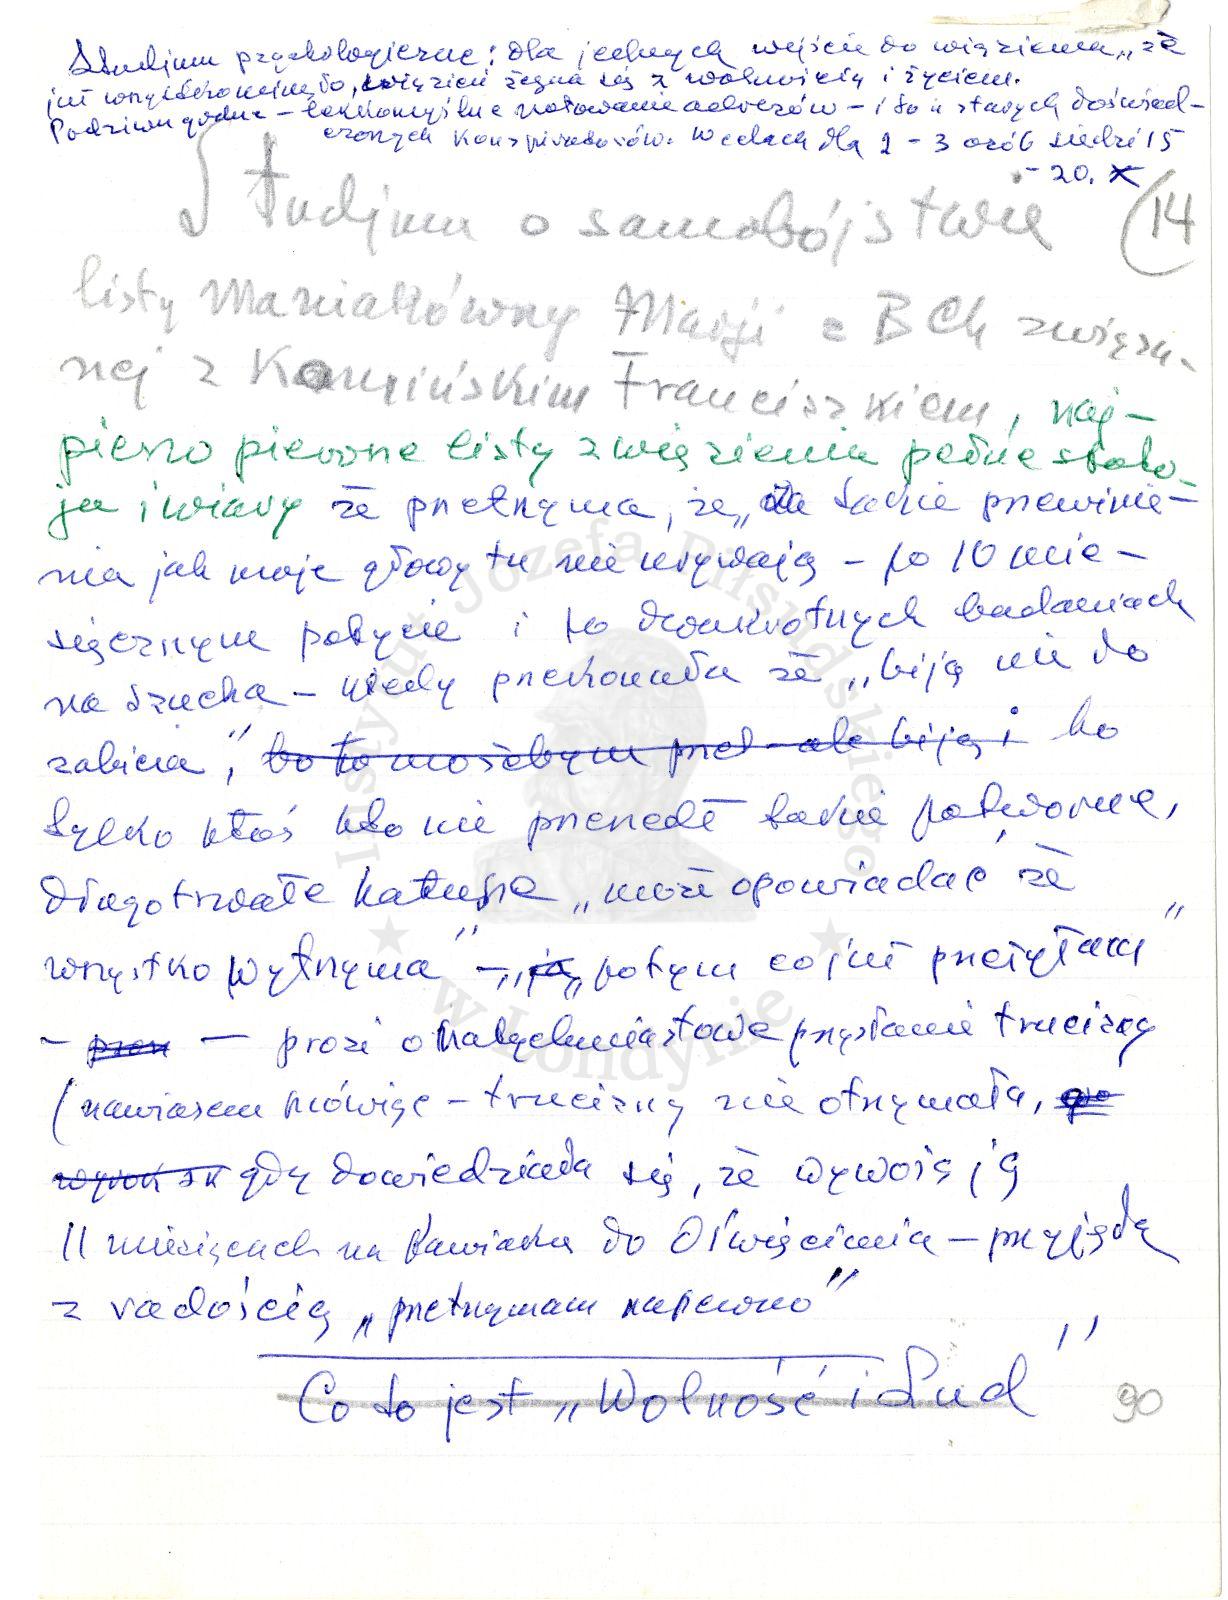 Studium psychologiczne: dla jednych wejście do więzienia „że
już wszystko minęło, więzień żegna się z wolnością i życiem.
Podziwu godne – lekkomyślne notowanie adresów – i to u starych doświad-
czonych konspiratorów. W celach dla 2 – 3 osób siedzi 15
– 20.
14
Studjum o samobójstwie
listy Maniakówny Marji z BCh związa-
nej z Kamińskim Franciszkiem, naj-
pierw pierwsze listy z więzienia pełne spoko-
ju i wiary że przetrzyma, że „za takie przewinie-
nia jak moje głowy tu nie urywają – po 10 mie-
sięcznym pobycie i po dwukrotnych badaniach
na Szucha – kiedy przekonała że „biją nie do
zabicia", bo to możebym – ale biją i bo
tylko ktoś kto nie przeszedł takie potworne,
długotrwałe katusze „może opowiadać że
wszystko wytrzyma" – „ja „po tym co już przeżyłam"
– – prosi o natychmiastowe przysłanie trucizny
(nawiasem mówiąc – trucizny nie otrzymała,
gdy dowiedziała się, że wywożą ją
11 miesiącach na Pawiaku do Oświęcimia – przyjęła
z radością „przetrzymam napewno"
Co to jest „Wolność i Lud"
90
Instytut Józefa Piłsudskiego
w Londynie